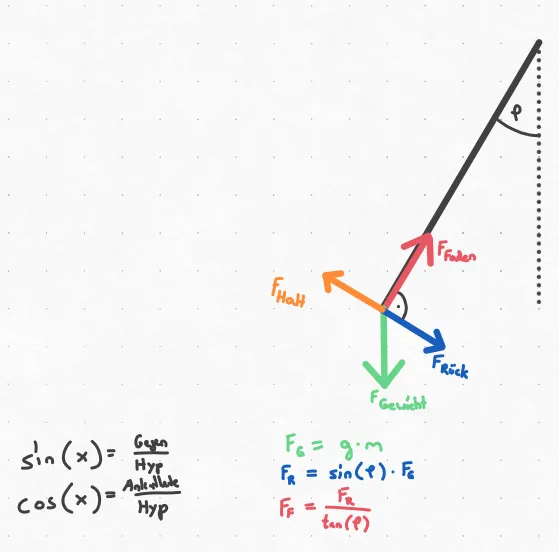 φ
F_Faden
F_Halt
F_Rück
F_Gewicht
sin(x) = Gegen / Hyp
cos(x) = Ankathete / Hyp
F_G = g·m
F_R = sin(φ)·F_G
F_F = F_R / tan(φ)